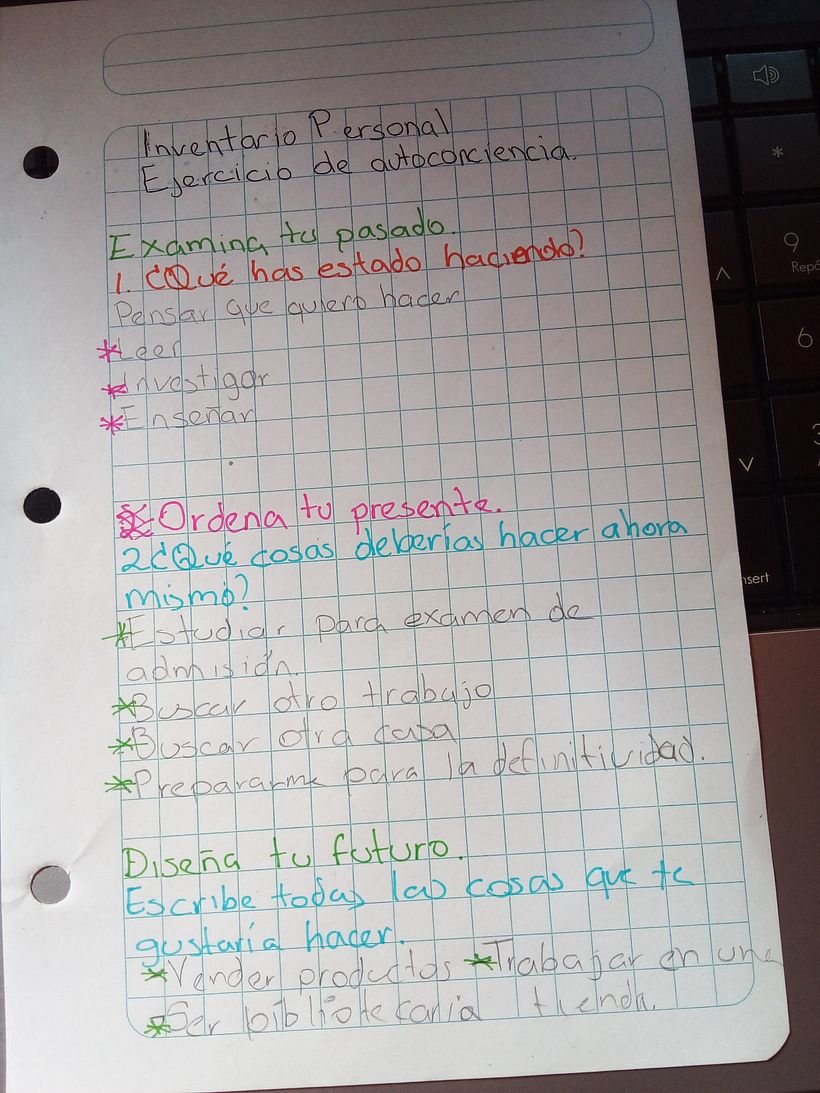 Inventario Personal
Ejercicio de autoconciencia.
Examina tu pasado.
1. ¿Qué has estado haciendo?
Pensar que quiero hacer
*Leer
*Investigar
*Enseñar
Ordena tu presente.
2¿Qué cosas deberías hacer ahora
mismo?
*Estudiar para examen de
admisión.
*Buscar otro trabajo
*Buscar otra casa
*Prepararme para la definitividad.
Diseña tu futuro.
Escribe todas las cosas que te
gustaría hacer.
*Vender productos *Trabajar en una
*Ser bibliotecaria tienda.
*
9
6